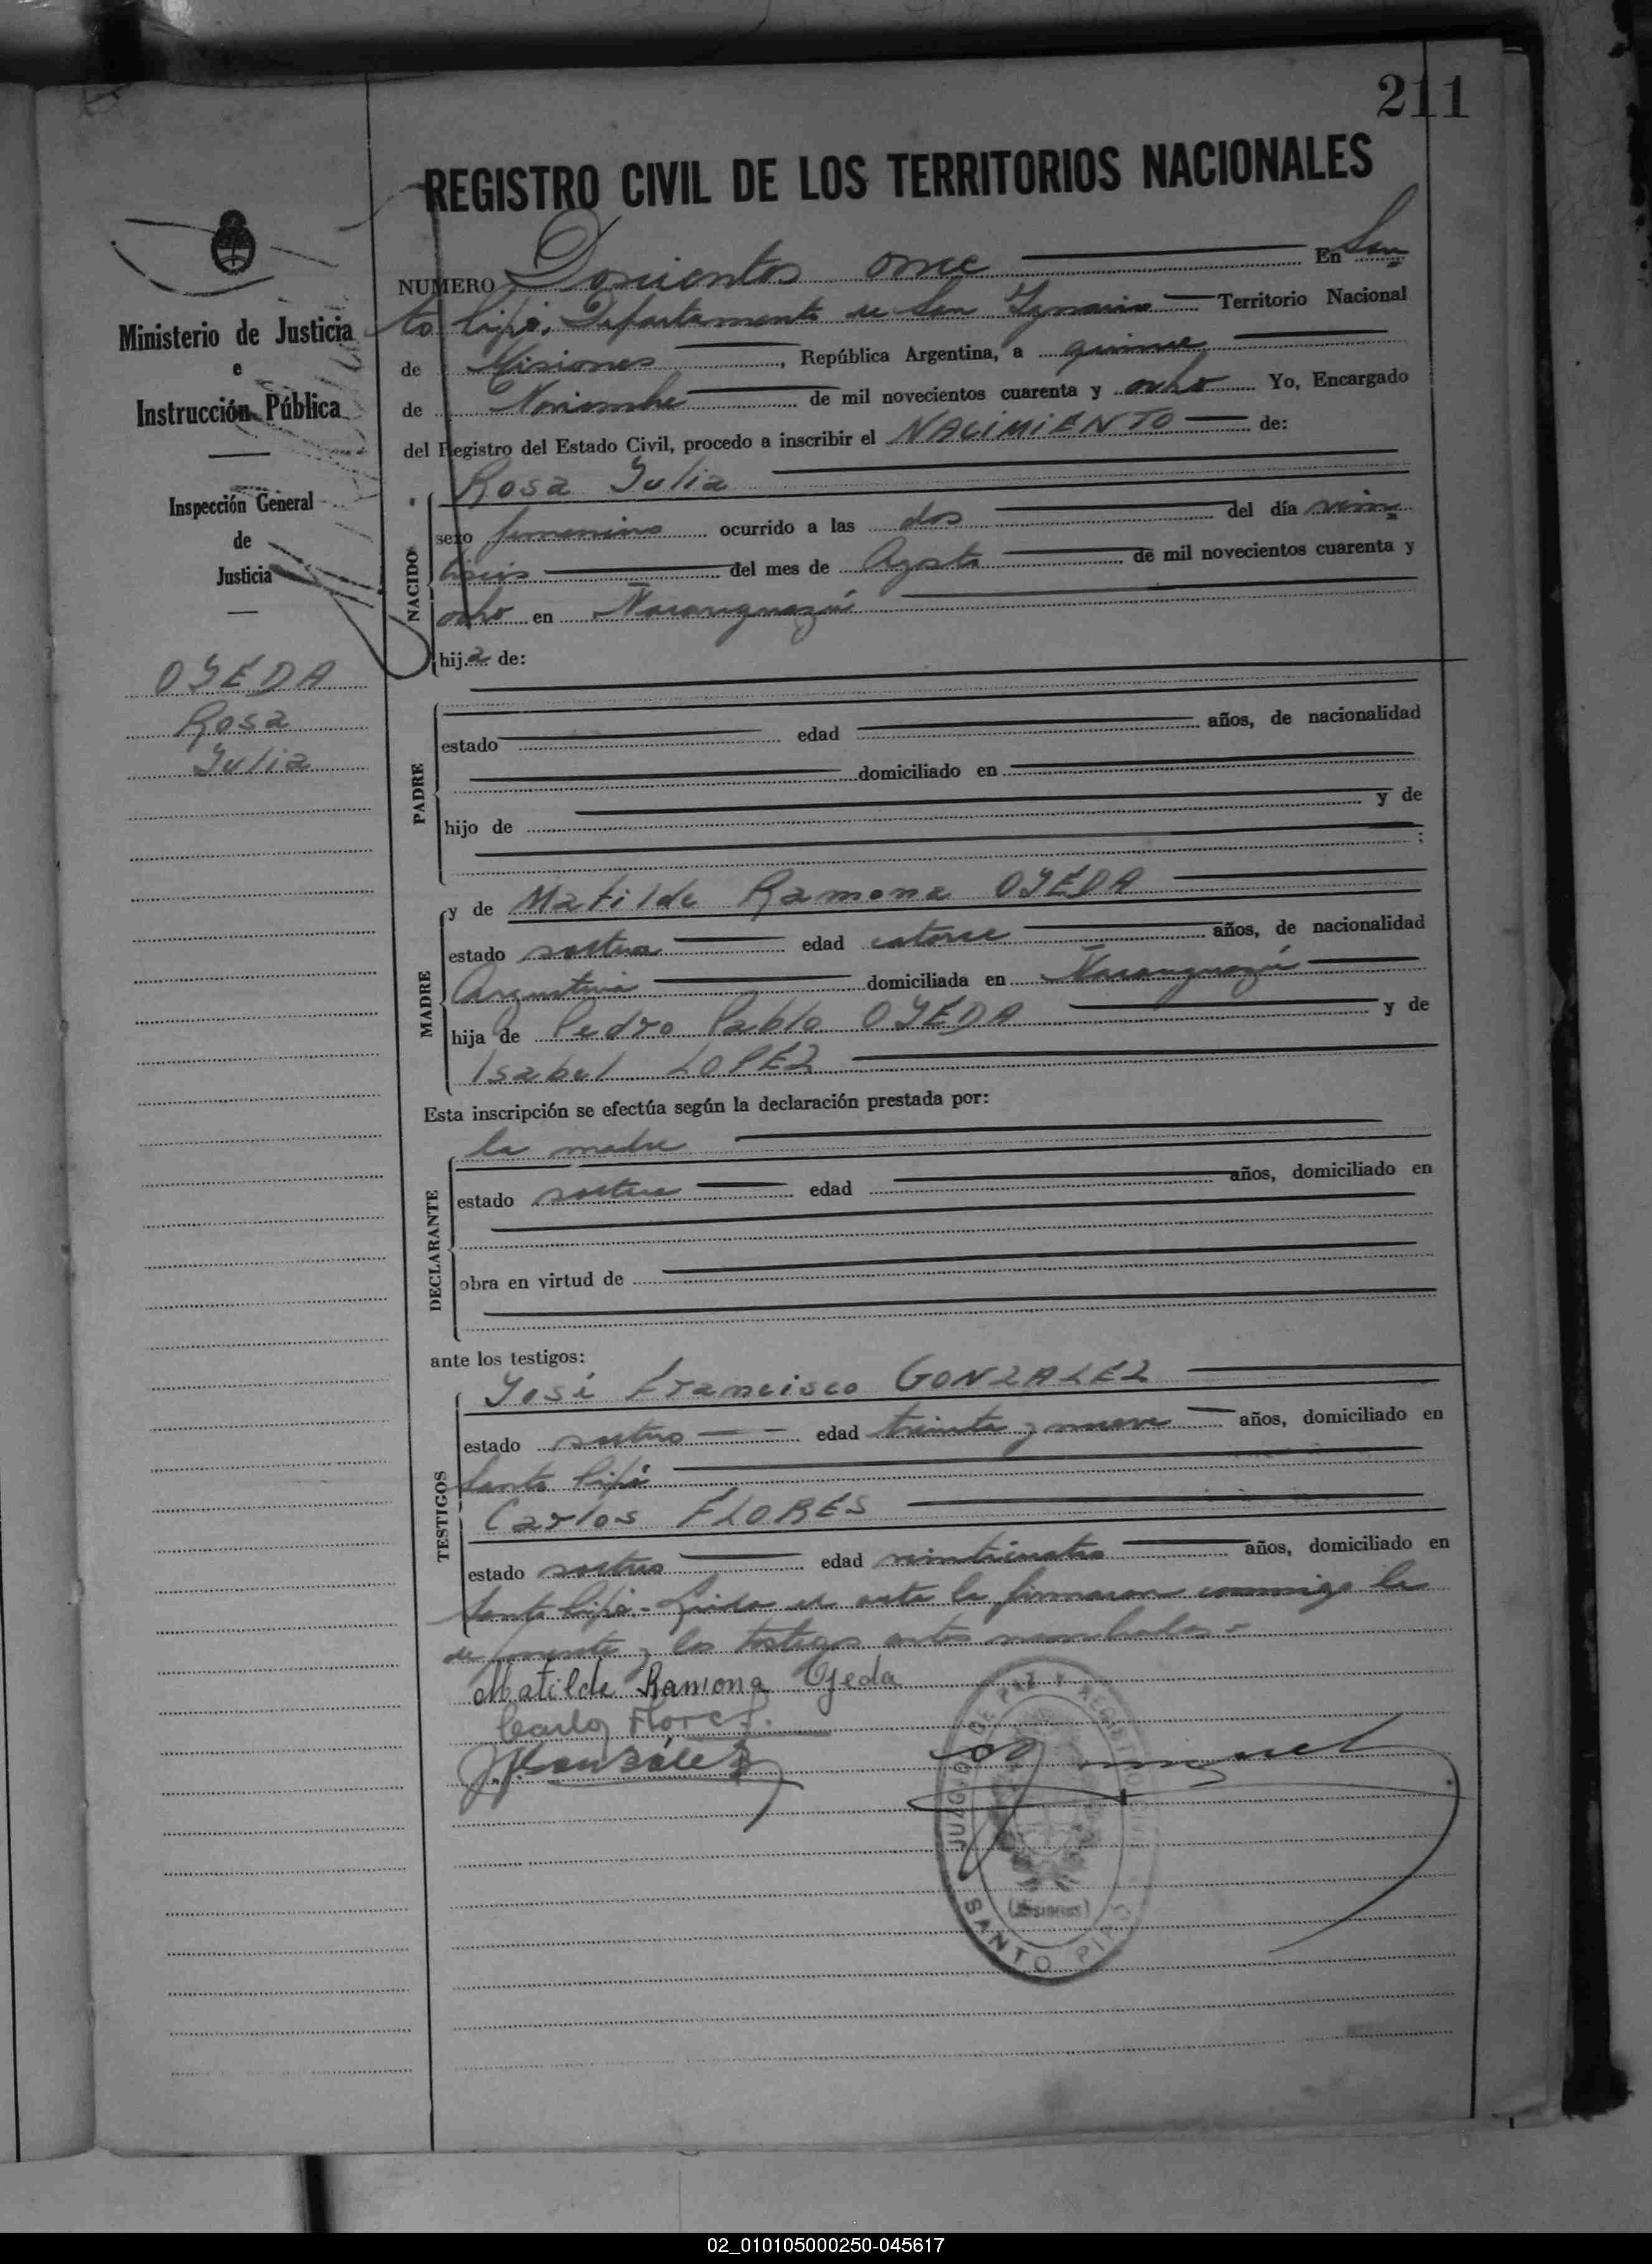 211
REGISTRO CIVIL DE LOS TERRITORIOS NACIONALES
Ministerio de Justicia
e
Instrucción Pública
Inspección General
de
Justicia
OJEDA
Rosa
Julia
NUMERO Doscientos once En San
to Pipó, Departamento de San Ignacio Territorio Nacional
de Misiones, República Argentina, a quince
de Noviembre de mil novecientos cuarenta y ocho Yo, Encargado
del Registro del Estado Civil, procedo a inscribir el NACIMIENTO de:
NACIDO
Rosa Julia
sexo femenino ocurrido a las dos del día vein
tiseis del mes de Agosto de mil novecientos cuarenta y
ocho en Ñacanguazú
hija de:
PADRE
estado edad años, de nacionalidad
domiciliado en
hijo de y de
;
MADRE
y de Matilde Ramona OJEDA
estado soltera edad catorce años, de nacionalidad
Argentina domiciliada en Ñacanguazú
hija de Pedro Pablo OJEDA y de
Isabel LOPEZ
Esta inscripción se efectúa según la declaración prestada por:
DECLARANTE
la madre
estado soltera edad años, domiciliado en
obra en virtud de
ante los testigos:
TESTIGOS
José Francisco GONZALEZ
estado soltero edad treinta y nueve años, domiciliado en
Santo Pipó
Carlos FLORES
estado soltero edad veinticuatro años, domiciliado en
Santo Pipó.- Leida el acta la firmaron conmigo la
y los testigos antes nombrados -
Matilde Ramona Ojeda
Carlos Flores.
J.F. González
JUZGADO DE PAZ Y REGISTRO CIVIL
(Misiones)
SANTO PIPO
02_010105000250-045617